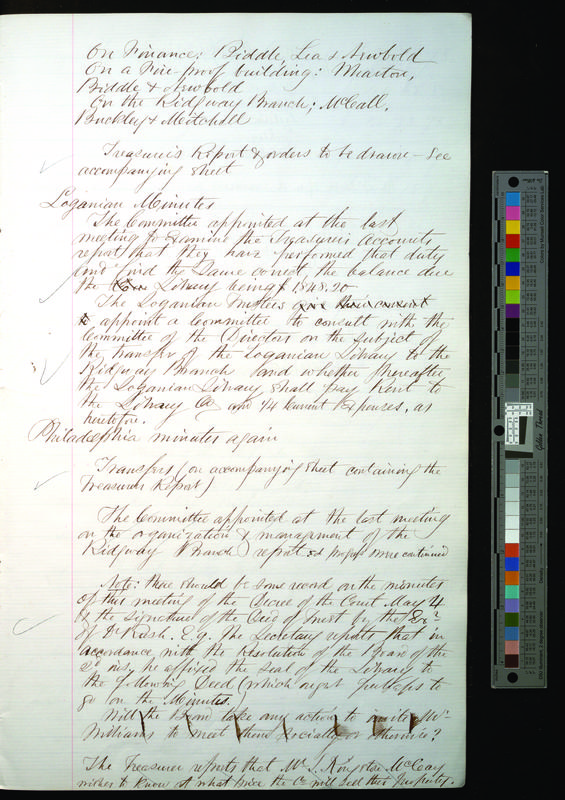 On Finance: Biddle, Lea & Newbold
On a Fire-proof building: Wharton,
Biddle & Newbold
On the Ridgway Branch; McCall,
Buckley & Mitchell
Treasurer's Report & orders to be drawn - See
accompanying sheet
Loganian Minutes
The Committee appointed at the last
meeting to examine the Treasurer's accounts
report that they have performed that duty
and find the same correct, the balance due
the Library being $1848.20
The Loganian Trustees
appoint a Committee to consult with the
Committee of the Directors on the subject of
the transfer of the Loganian Library to the
Ridgway Branch and whether hereafter
the Loganian Library shall pay Rent to
the Library Co and 1/4 Current Expenses, as
heretofore.
Philadelphia minutes again
Transfers (on accompanying sheet containing the
Treasurer's Report)
The Committee appointed at the last meeting
on the organization & management of the
Ridgway Branch report and were continued
Note: there should be some record on the minutes
of this meeting of the Decree of the Court May 4
& the signature of the Deed of Trust by the Exr
of Dr Rush. E.g. The Secretary reports that in
accordance with the Resolution of the Board of the
he affixed the seal of the Library to
the following Deed (which ought perhaps to
go on the Minutes.
Will the Board take any action to invite Mr
Williams to meet them socially or otherwise?
The Treasurer reports that Mr J. Kingston McCay
wishes to know at what price the Co will sell their property.